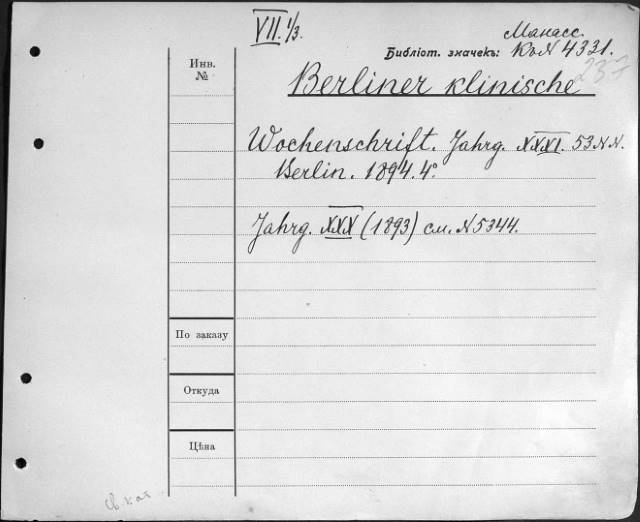 VII. 1/3.
Манасс.
Библіот. значекъ: К.о.N 4331.
237
Инв.
№
Berliner klinische
Wochenschrift. Jahrg. XXXI. 53 N.N.
Berlin. 1894. 4°.
Jahrg. XXX (1893) см. N 5344.
По заказу
Откуда
Цѣна